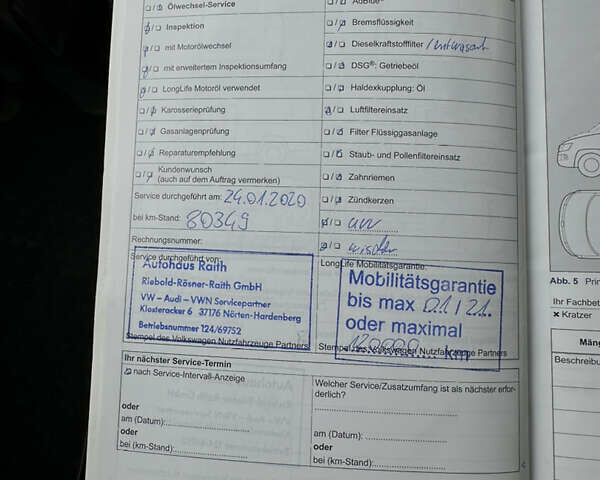 Ölwechsel-Service
AdBlue®
Inspektion
Bremsflüssigkeit
mit Motorölwechsel
Dieselkraftstofffilter
mit erweitertem Inspektionsumfang
DSG®: Getriebeöl
LongLife Motoröl verwendet
Haldexkupplung: Öl
Karosserieprüfung
Luftfiltereinsatz
Gasanlagenprüfung
Filter Flüssiggasanlage
Reparaturempfehlung
Staub- und Pollenfiltereinsatz
Kundenwunsch
(auch auf dem Auftrag vermerken)
Zahnriemen
Service durchgeführt am: 24.01.2020
Zündkerzen
bei km-Stand: 80349
Rechnungsnummer:
wischer
Service durchgeführt von:
Autohaus Raith
Riebold-Rösner-Raith GmbH
VW – Audi – VWN Servicepartner
Klosteracker 6 37176 Nörten-Hardenberg
Betriebsnummer 124/69752
Stempel des Volkswagen Nutzfahrzeuge Partners
LongLife Mobilitätsgarantie:
Mobilitätsgarantie
bis max 01/21.
oder maximal
120000 km
Stempel des Volkswagen Nutzfahrzeuge Partners
Ihr nächster Service-Termin
nach Service-Intervall-Anzeige
oder
am (Datum):
oder
bei (km-Stand):
Welcher Service/Zusatzumfang ist als nächster erfor-
derlich?
am (Datum):
oder
bei (km-Stand):
Abb. 5
Ihr Fachbet
× Kratzer
Beschreibu